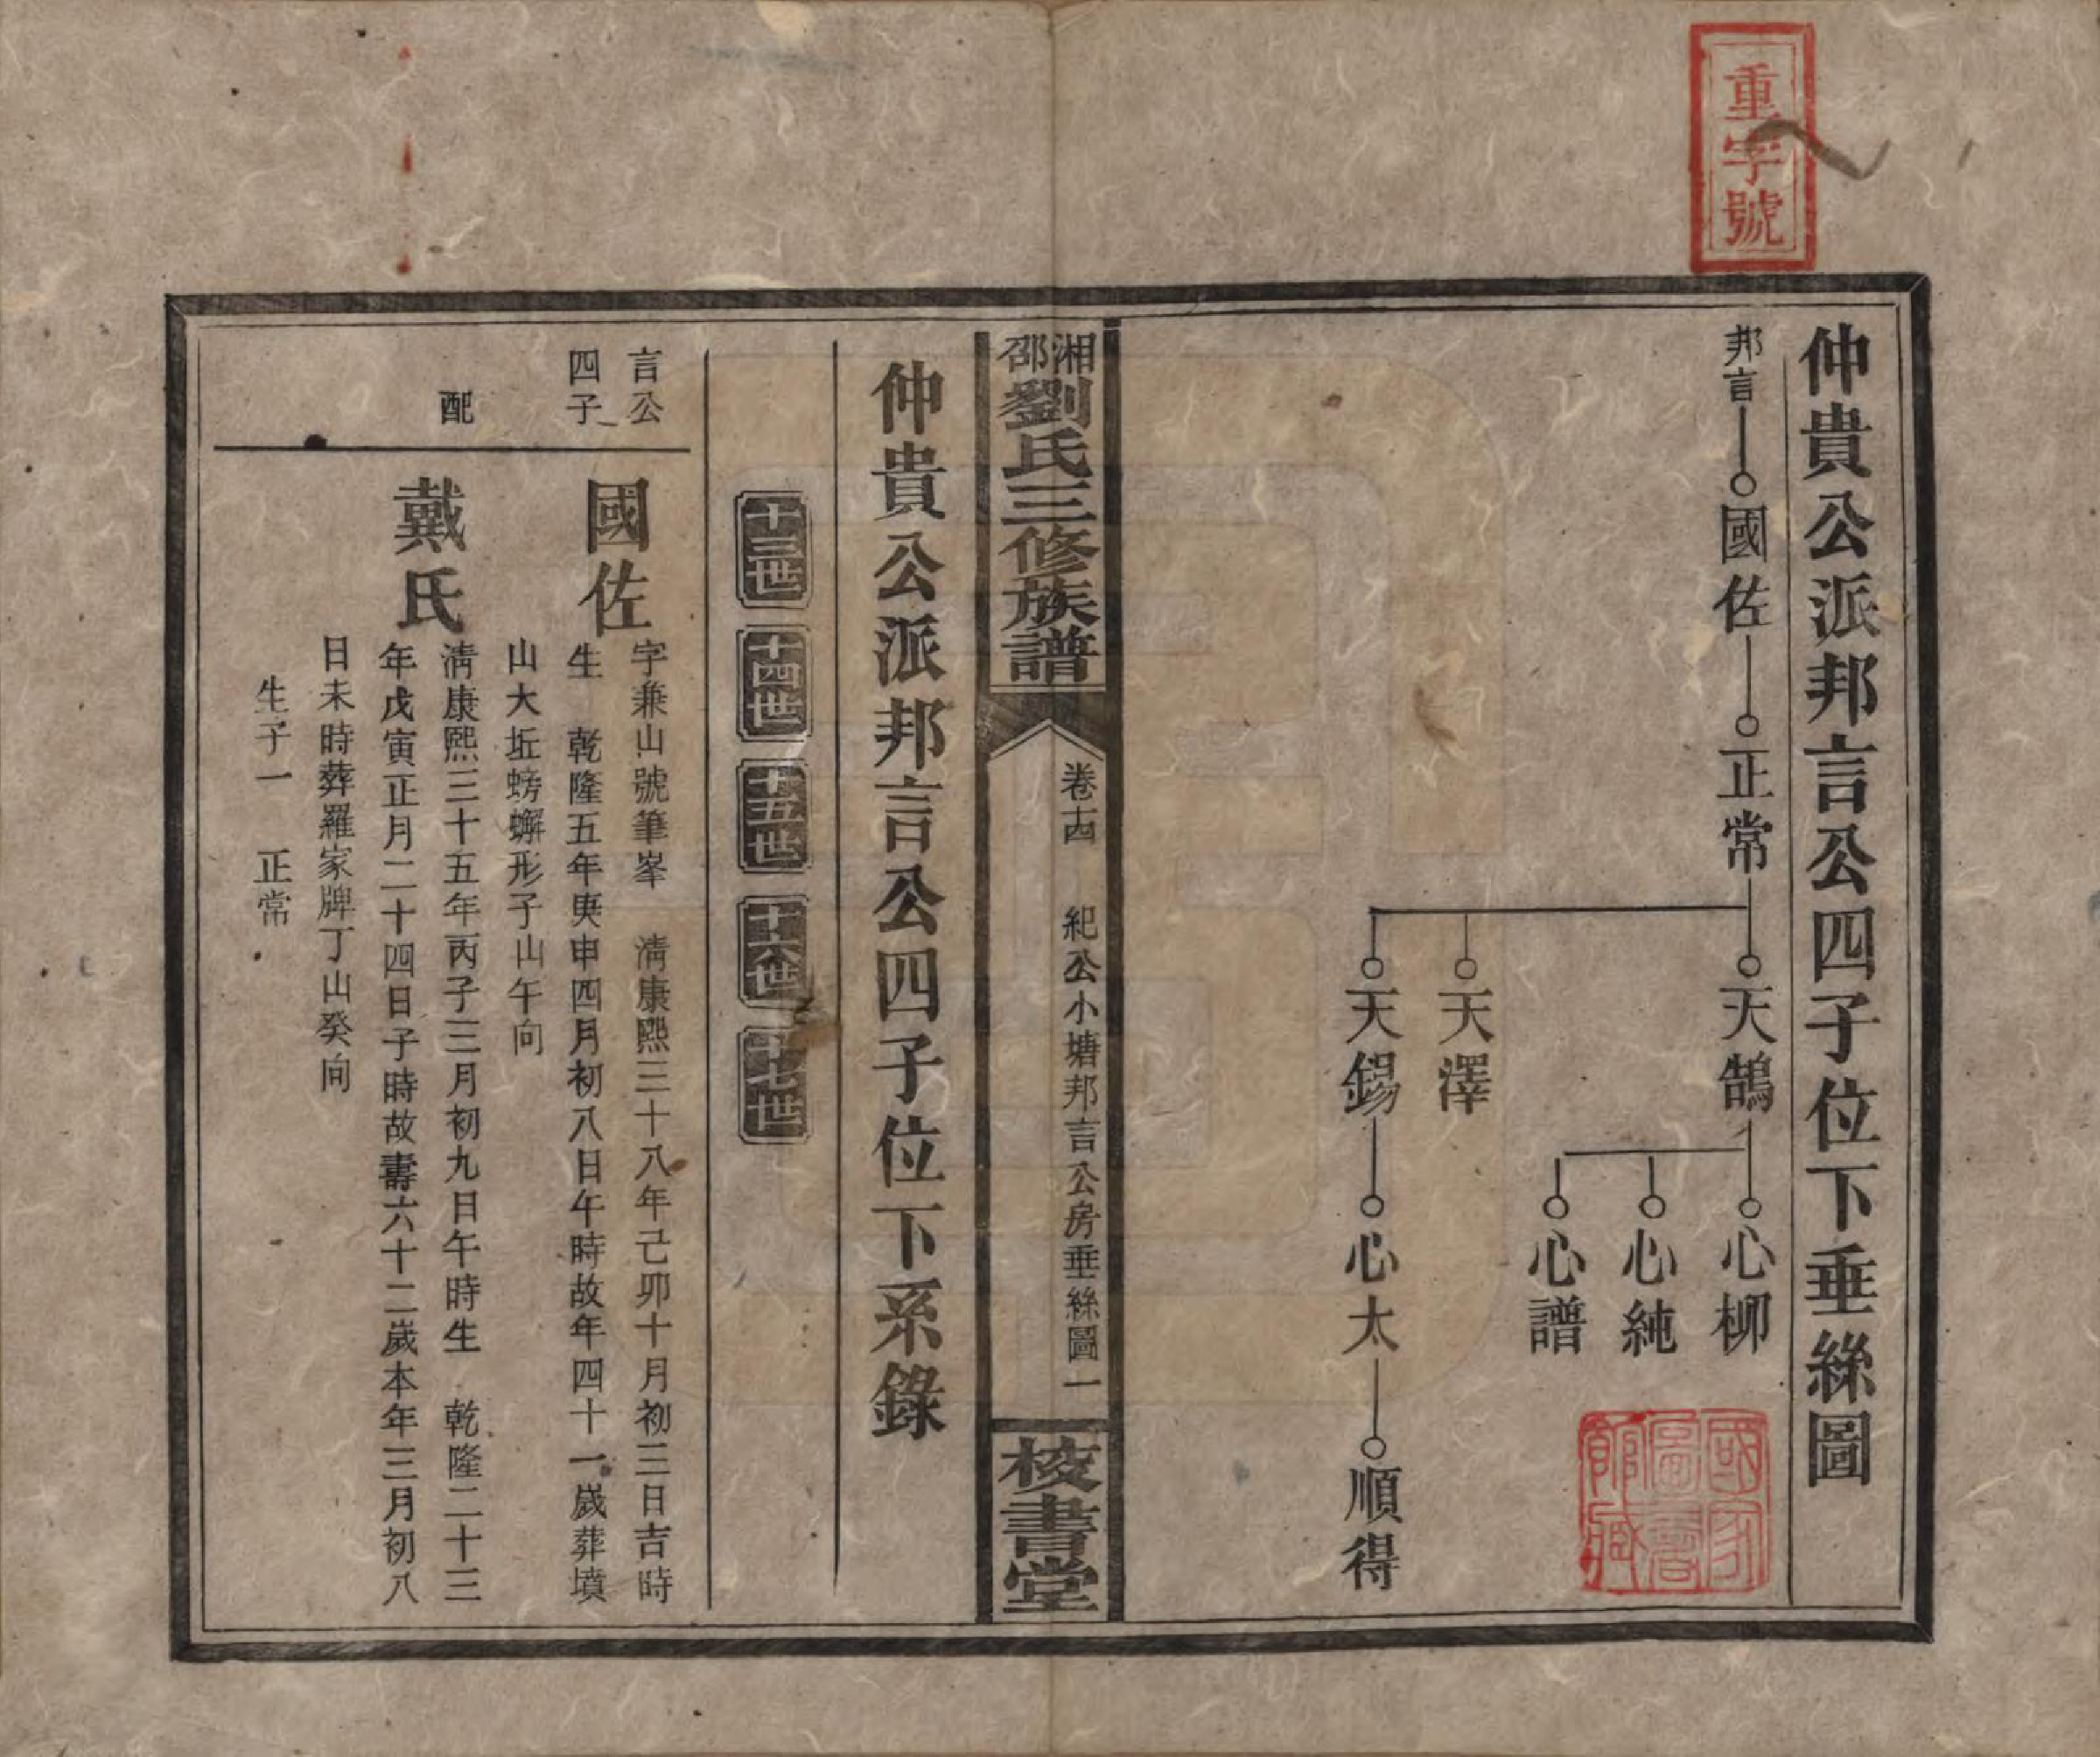 重字號
仲貴公派邦言公四子位下垂絲圖
邦言 國佐 正常 天鵠 心柳
心純
心譜
天澤
天錫 心太 順得
國家圖書館藏
湘邵劉氏三修族譜
卷十四 紀公小塘邦言公房垂絲圖一
校書堂
仲貴公派邦言公四子位下系錄
十三世 十四世 十五世 十六世 十七世
言公四子
國佐
字兼山號筆峯 清康熙三十八年己卯十月初三日吉時
生 乾隆五年庚申四月初八日午時故年四十一歲葬墳
山大坵螃蠏形子山午向
配
戴氏
清康熙三十五年丙子三月初九日午時生 乾隆二十三
年戊寅正月二十四日子時故壽六十二歲本年三月初八
日未時葬羅家牌丁山癸向
生子一 正常